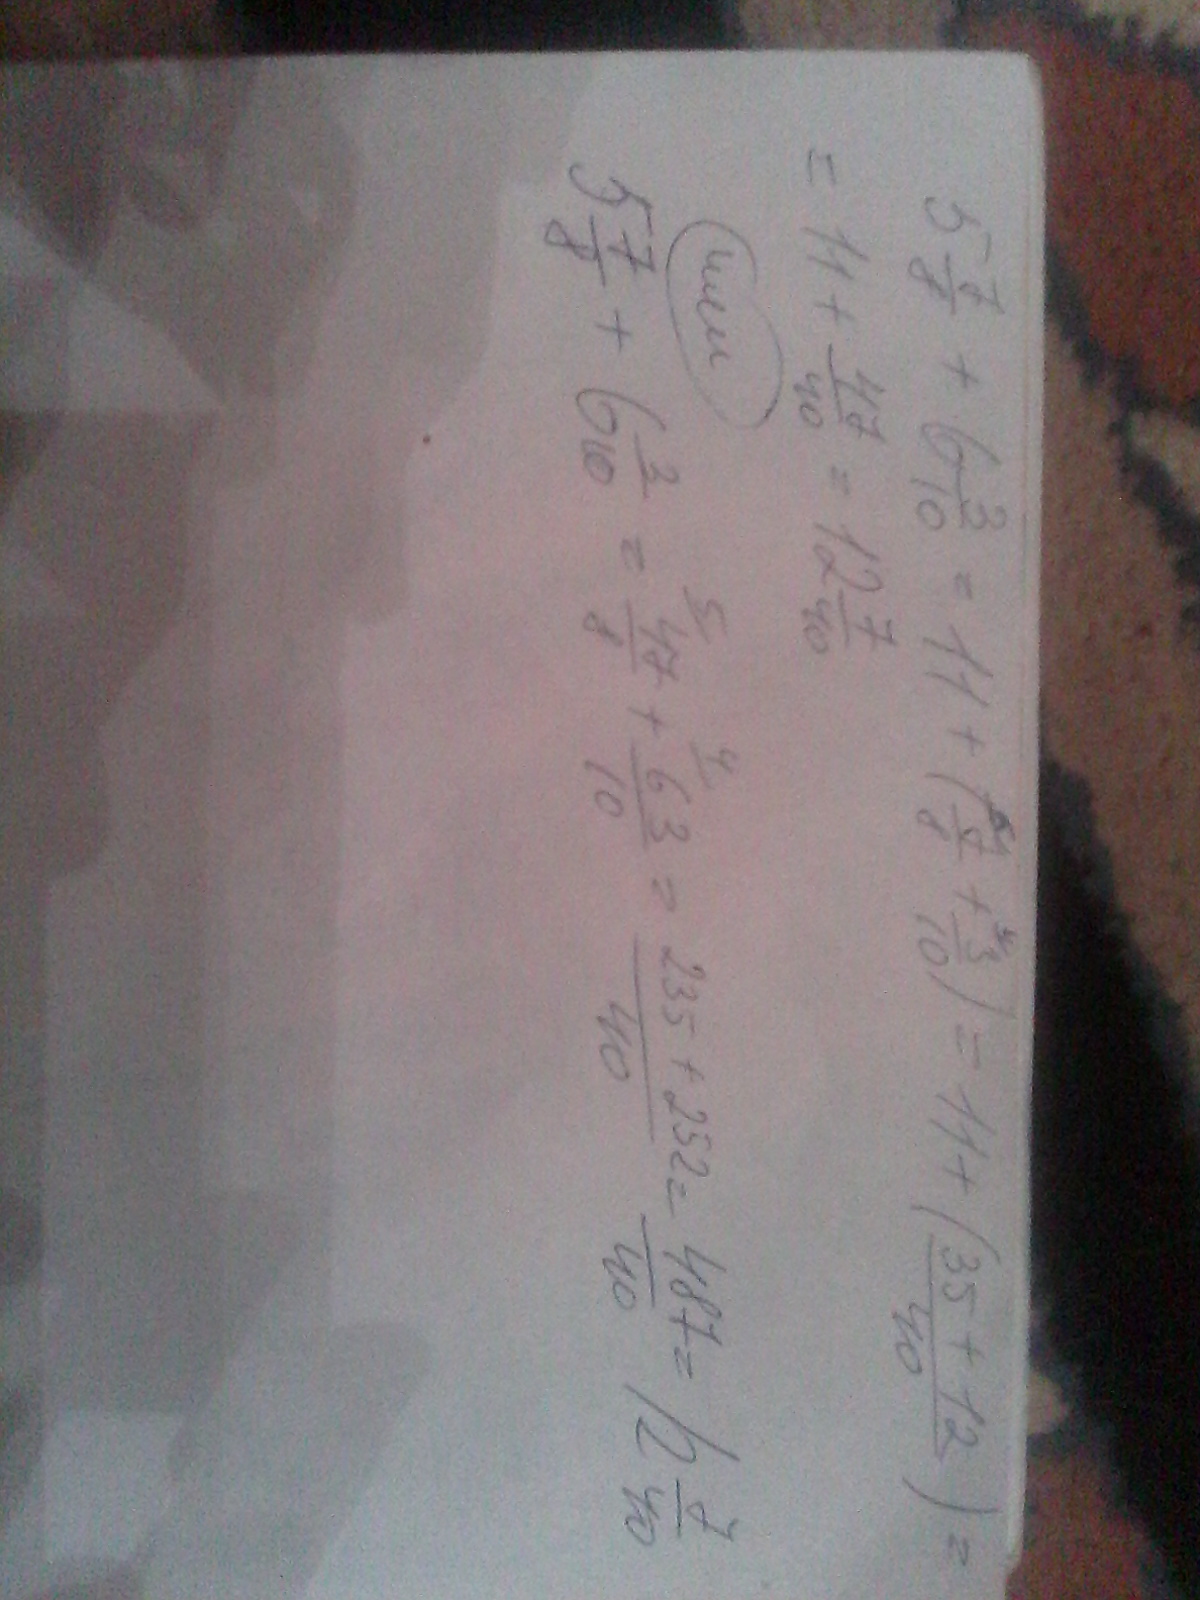 5 7/8 + 6 3/10 = 11 + (7/8 ⁵ + 3/10 ⁴) = 11 + (35 + 12 / 40) =
= 11 + 47/40 = 12 7/40
или
5 7/8 + 6 3/10 = 47/8 ⁵ + 63/10 ⁴ = 235 + 252 / 40 = 487/40 = 12 7/40